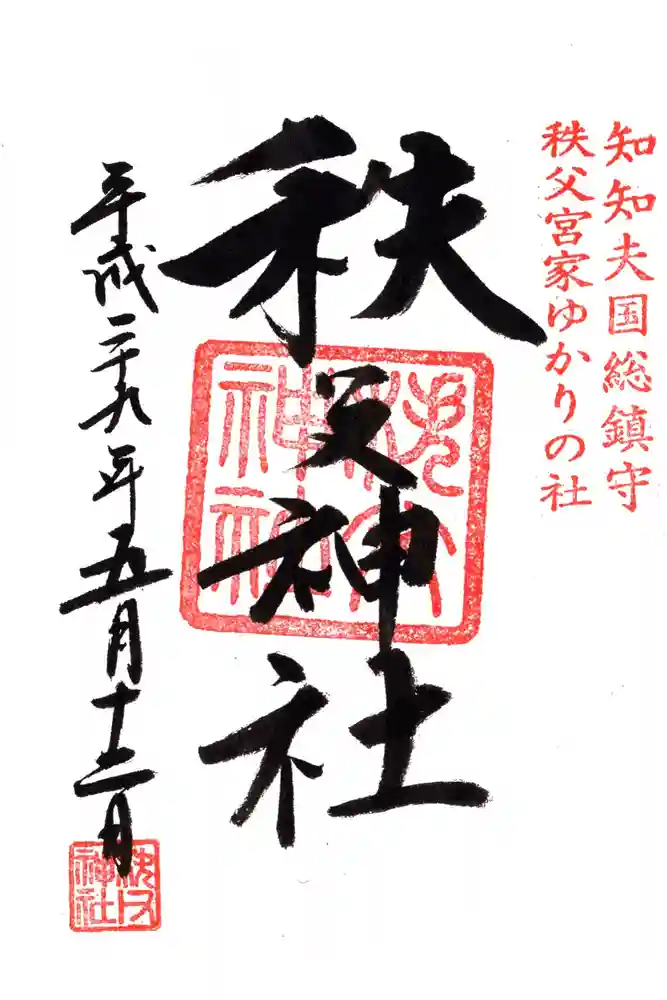 知知夫国総鎮守
秩父宮家ゆかりの社
秩父神社
秩父神社
平成二十九年五月十二日
秩父神社